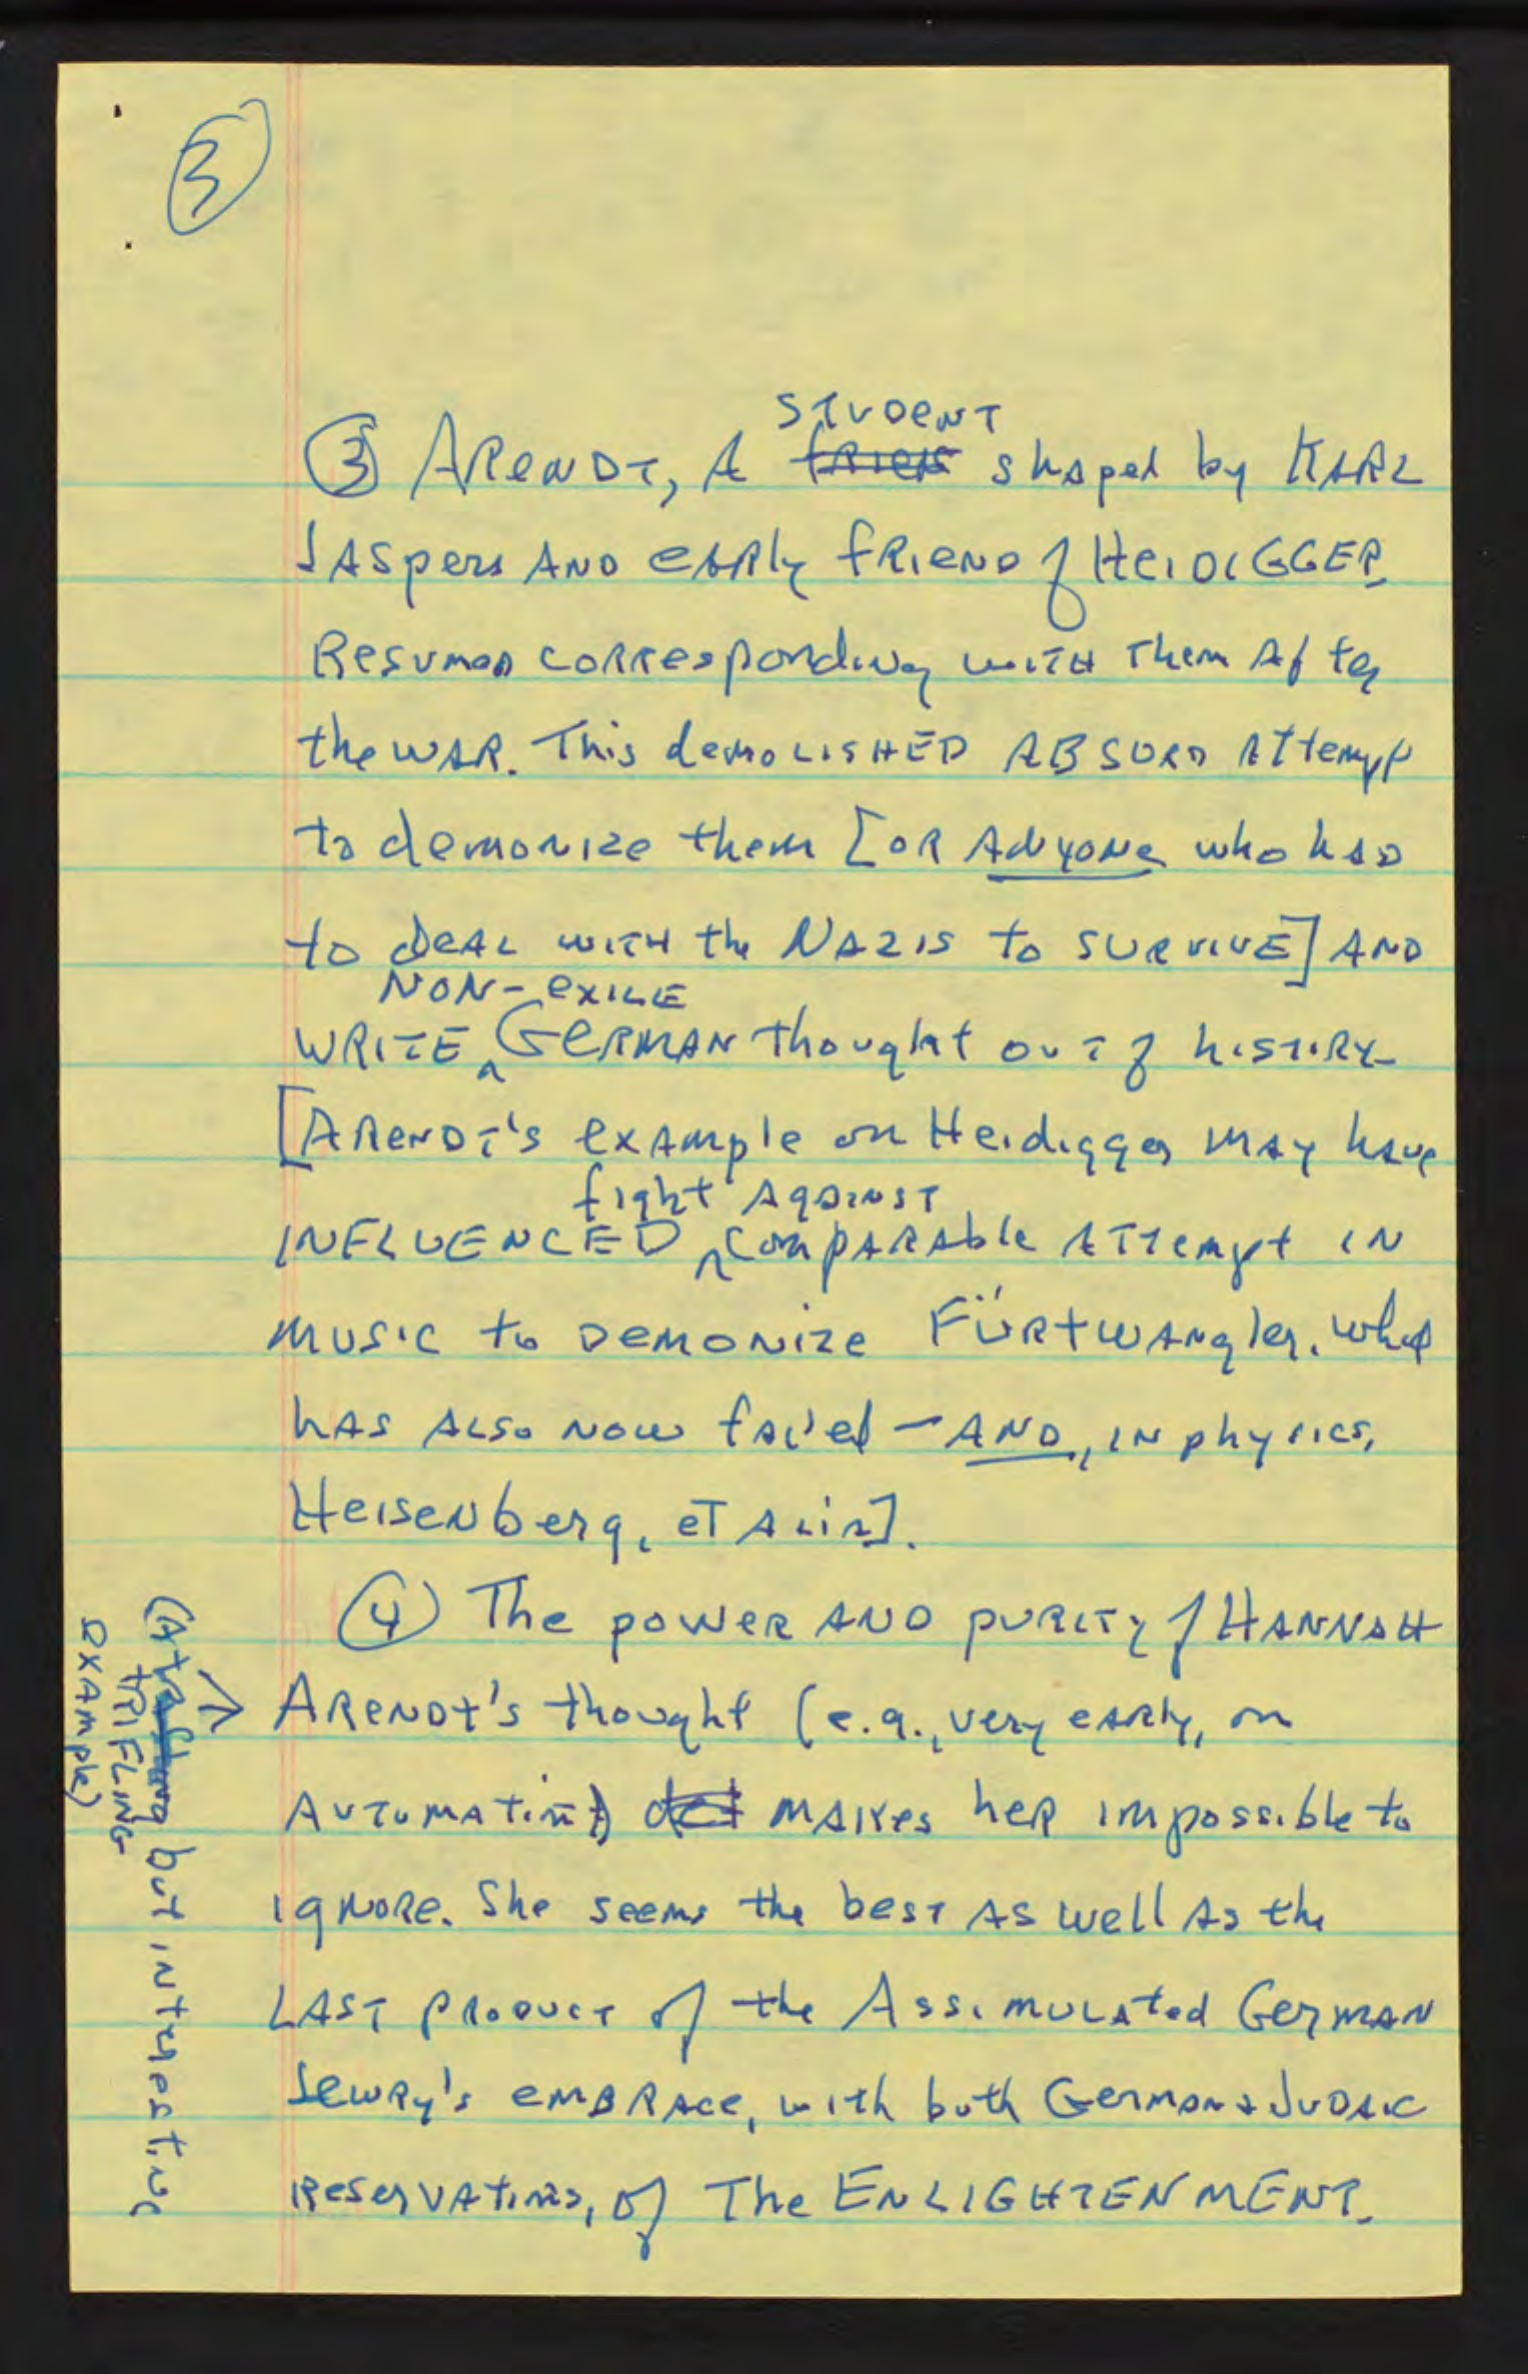 3
STUDENT
③ ARENDT, A frien shaped by KARL
JASpers AND early FRIEND of HEIDIGGER
Resumed corresponding with Them After
the WAR. This demoLISHED ABSURD Attempt
to demonize them [OR ANYONE who had
to DEAL WITH the NAZIS to SURVIVE] AND
NON-EXILE
WRITE GERMAN thought out of history
[ARENDT'S example on Heidigger may have
fight AGAINST
INFLUENCED comparable Attempt IN
MUSIC to DEMONIZE FÜRTWANgler, what
has also now failed – AND, IN physics,
Heisenberg, et alia].
④ The power AND PURITY of HANNAH
ARENDT's thought (e.g., very early, on
Automation) makes her impossible to
ignore. She seems the best as well as the
LAST PRODUCT of the Assimulated GerMAN
Jewry's EMBRACE, with both German & JUDAIC
Reservations, of The ENLIGHTENMENT.
(A but interesting
TRIFLING
EXAMPLE)